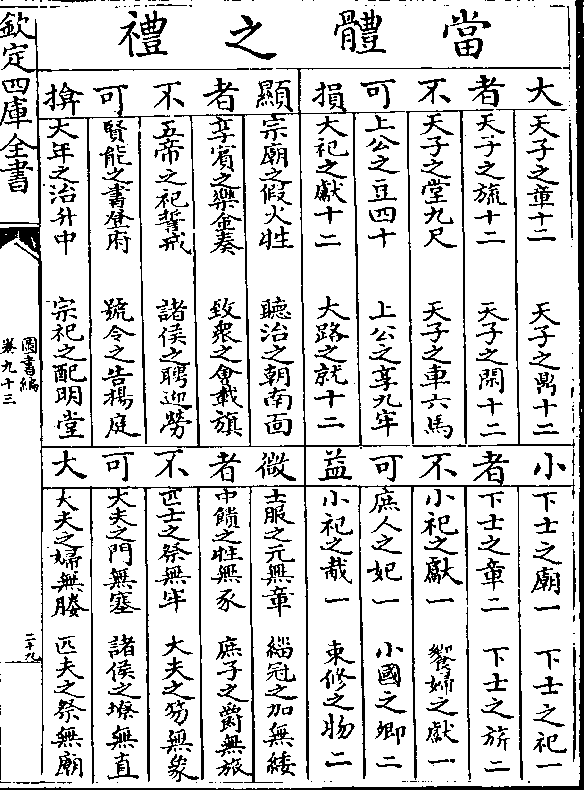 當體之禮
大者不可損
天子之章十二　天子之鼎十二
天子之旒十二　天子之閑十二
天子之堂九尺　天子之車六馬
上公之豆四十　上公之享九牢
大祀之獻十二　大路之就十二
顯者不可揜
宗廟之假大牲　聽治之朝南面
享賓之樂金奏　致衆之會載旗
五帝之祀誓戒　諸侯之聘迎勞
賢能之書登府　號令之告揚庭
大年之治升中　宗祀之配明堂
小者不可益
下士之廟一　下士之祀一
下士之章二　下士之旂二
小祀之獻一　饗婦之獻一
庶人之妃一　小國之卿二
小祀之胾一　束修之物二
微者不可大
士服之元無章　緇冠之加無緌
中饋之牲無豕　庶子之爵無旅
匹士之祭無牢　大夫之笏無象
大夫之門無塞　諸侯之燎無直
大夫之婦無媵　匹夫之祭無廟
欽定四庫全書
圖書編
卷九十三
二十九